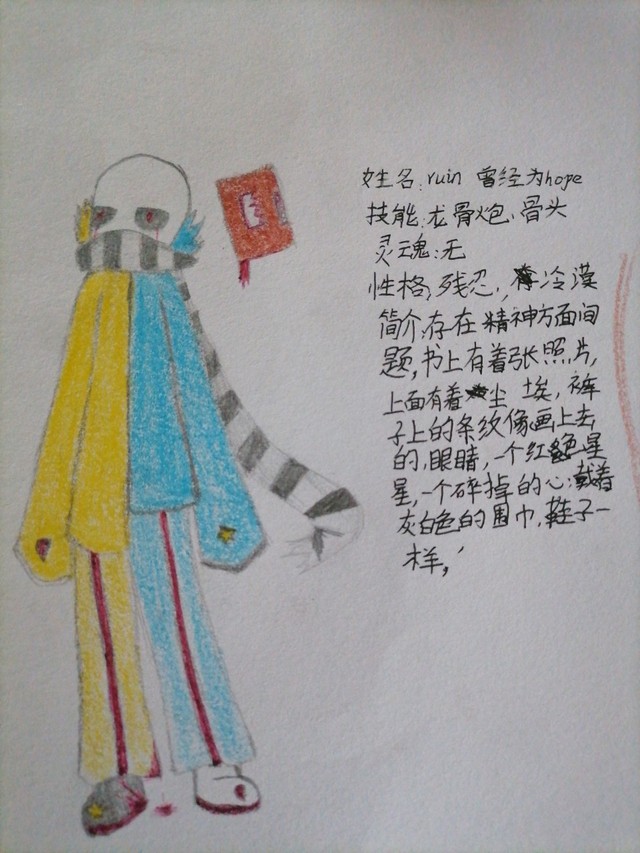 姓名:ruin 曾经为hope
技能:龙骨炮、骨头
灵魂:无
性格:残忍,冷漠
简介:存在精神方面问
题,书上有着张照片,
上面有着尘埃,裤
子上的条纹像画上去
的,眼睛,一个红色星
星,一个碎掉的心;戴着
灰白色的围巾,鞋子一
样,